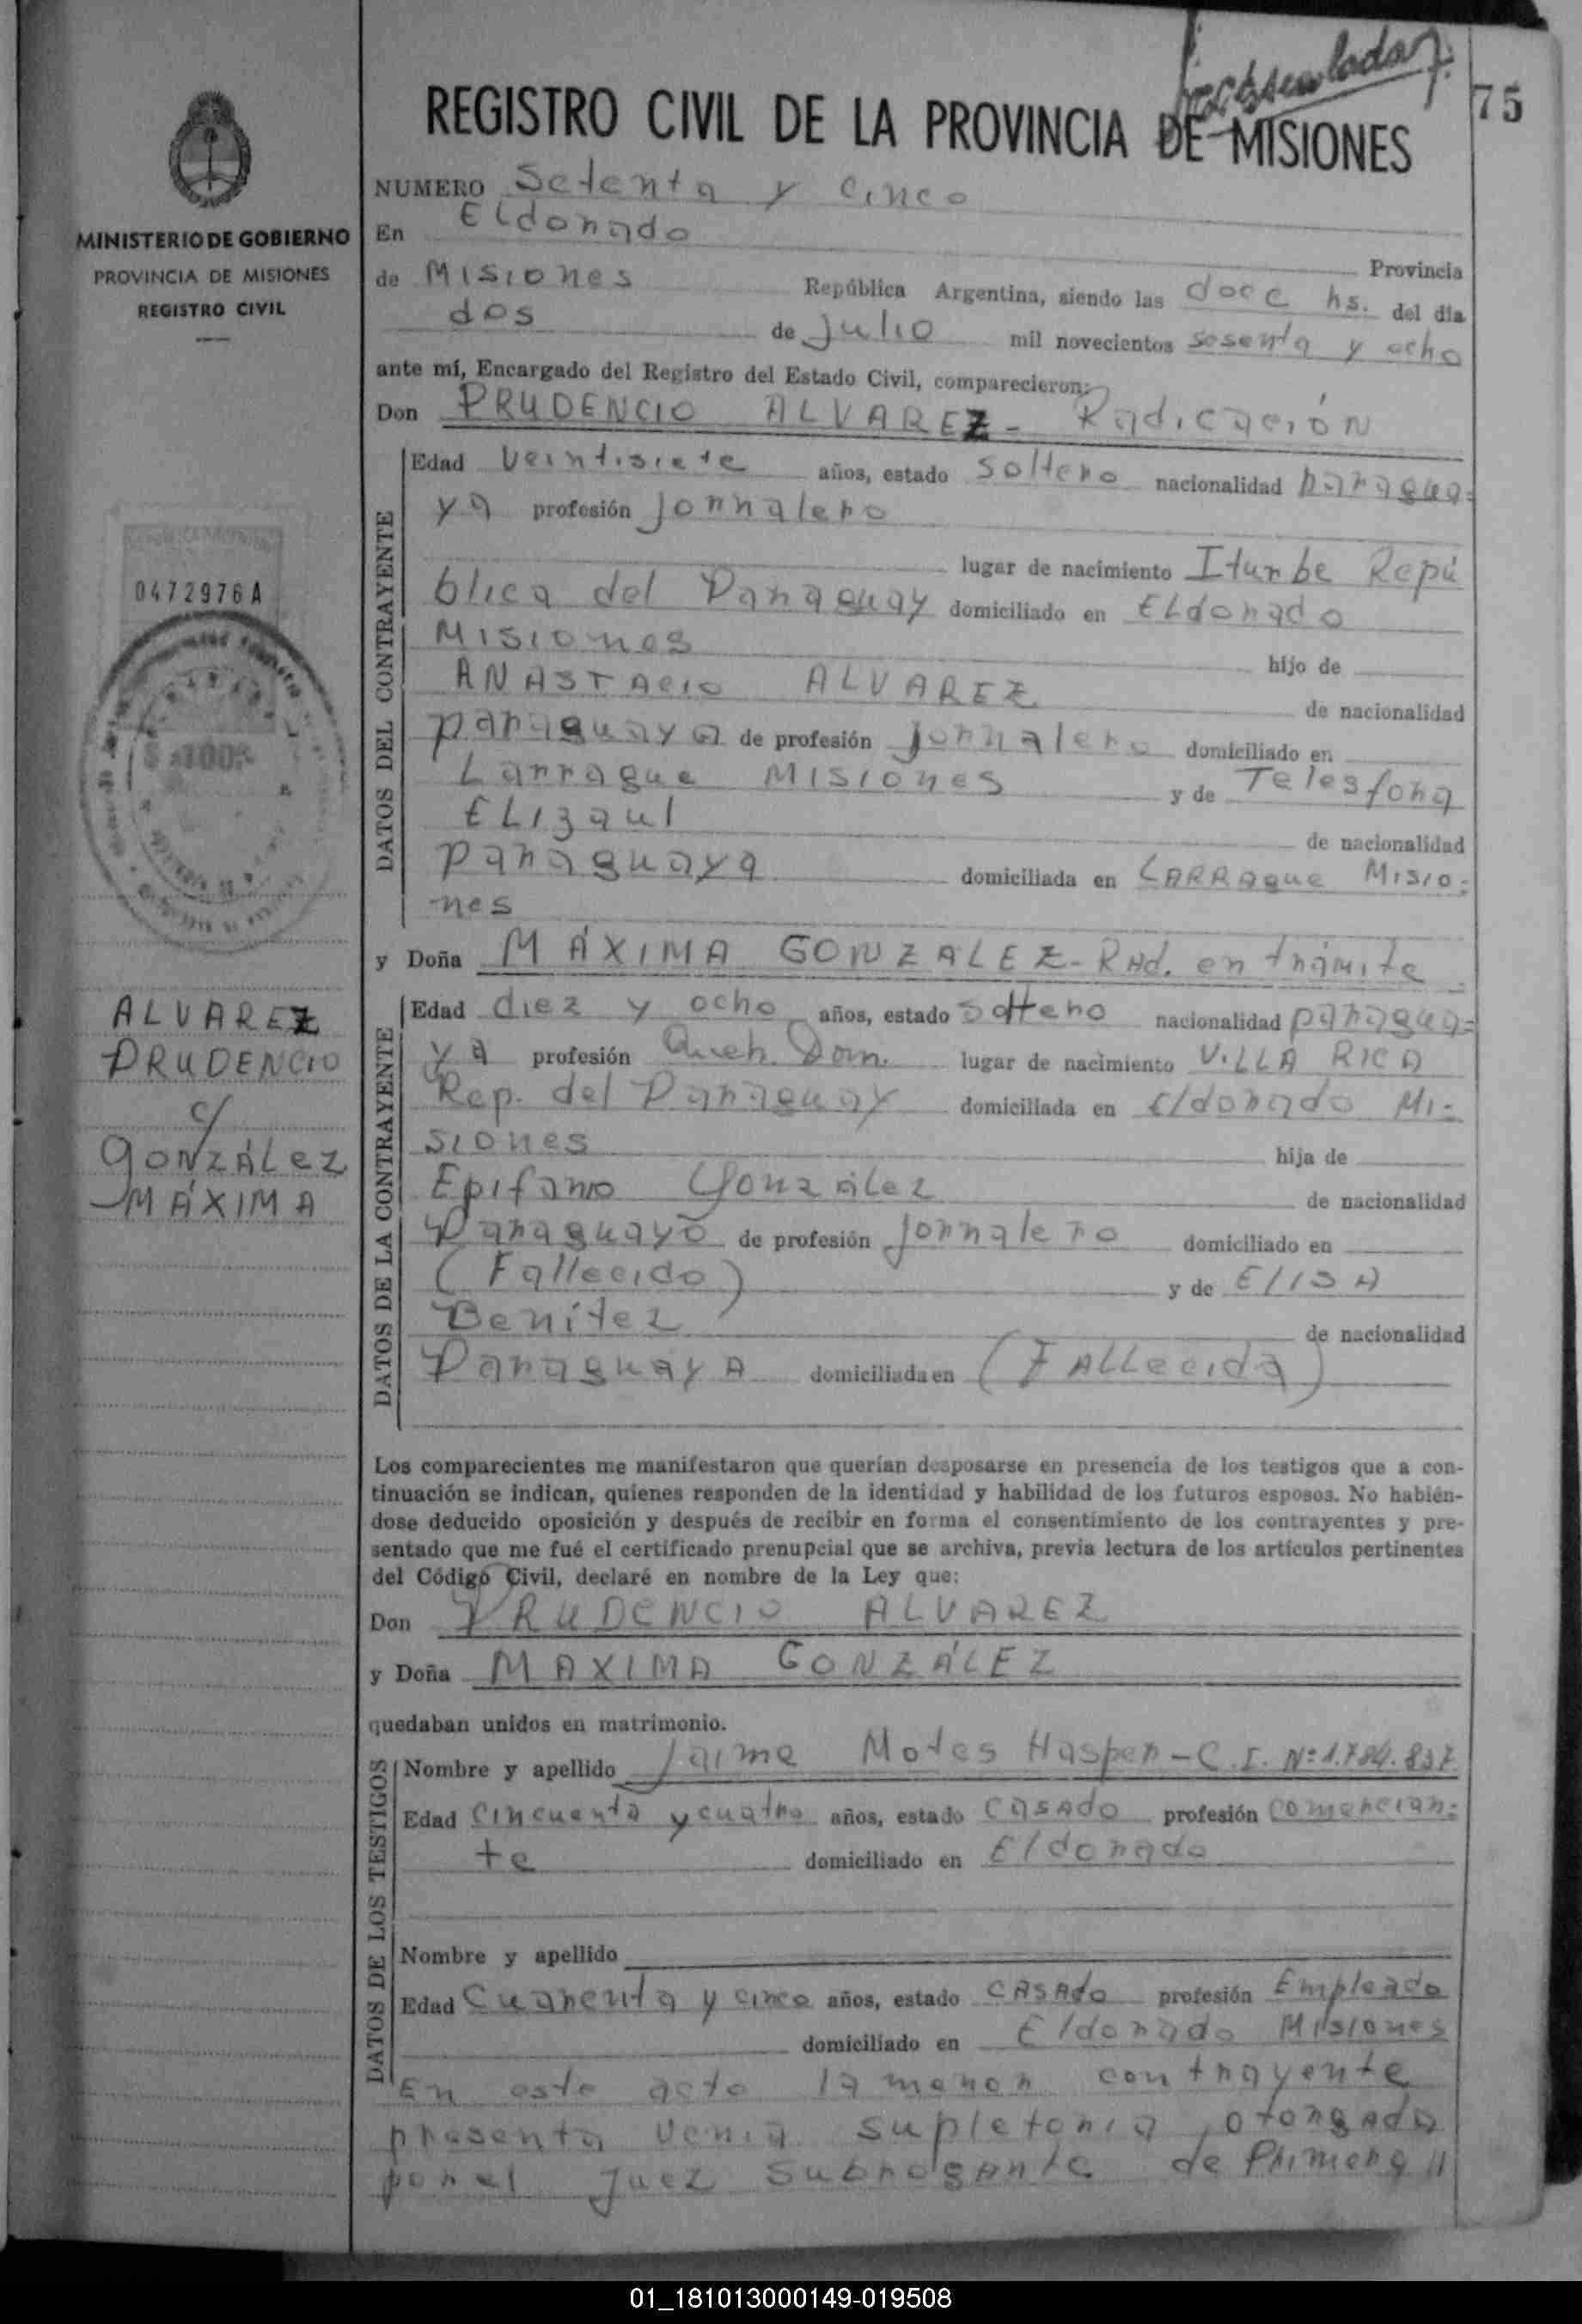 75
REGISTRO CIVIL DE LA PROVINCIA DE MISIONES
MINISTERIO DE GOBIERNO
PROVINCIA DE MISIONES
REGISTRO CIVIL
0472976 A
ALVAREZ
PRUDENCIO
c/
GONZÁLEZ
MÁXIMA
NUMERO Setenta y cinco
En ELdorado
Provincia
de Misiones República Argentina, siendo las doce hs. del día
dos de Julio mil novecientos sesenta y ocho
ante mí, Encargado del Registro del Estado Civil, comparecieron:
Don PRUDENCIO ALVAREZ - Radicación
DATOS DEL CONTRAYENTE
Edad veintisiete años, estado soltero nacionalidad paragua=
ya profesión Jornalero
lugar de nacimiento Iturbe Repú
blica del Paraguay domiciliado en ELdorado
Misiones hijo de
ANASTAcio ALVAREZ de nacionalidad
paraguaya de profesión jornalero domiciliado en
Larrague Misiones y de Telesfora
ELizaul de nacionalidad
paraguaya domiciliada en LARRAgue Misio=
nes
y Doña MÁXIMA GONZALEZ - RAd. en trámite
DATOS DE LA CONTRAYENTE
Edad diez y ocho años, estado soltero nacionalidad paragua=
ya profesión Queh. Dom. lugar de nacimiento ViLLA RICA
Rep. del Paraguay domiciliada en Eldorado Mi-
siones hija de
Epifanio González de nacionalidad
Paraguayo de profesión Jornalero domiciliado en
(Fallecido) y de ElisA
Benítez de nacionalidad
ParaguayA domiciliada en (FALLecida)
Los comparecientes me manifestaron que querían desposarse en presencia de los testigos que a con-
tinuación se indican, quienes responden de la identidad y habilidad de los futuros esposos. No habién-
dose deducido oposición y después de recibir en forma el consentimiento de los contrayentes y pre-
sentado que me fué el certificado prenupcial que se archiva, previa lectura de los artículos pertinentes
del Código Civil, declaré en nombre de la Ley que:
Don PRUDENCIO ALVAREZ
y Doña MAXIMA GONZÁLEZ
quedaban unidos en matrimonio.
DATOS DE LOS TESTIGOS
Nombre y apellido Jaime Motes Hasper - C.I. Nº 1.784.837
Edad cincuenta y cuatro años, estado casado profesión comercian=
te domiciliado en Eldorado
Nombre y apellido
Edad Cuarenta y cinco años, estado CASAdo profesión Empleado
domiciliado en Eldorado Misiones
En este acto la menor contrayente
presenta venia supletoria otorgada
por el juez Subrogante de Primera
01_181013000149-019508